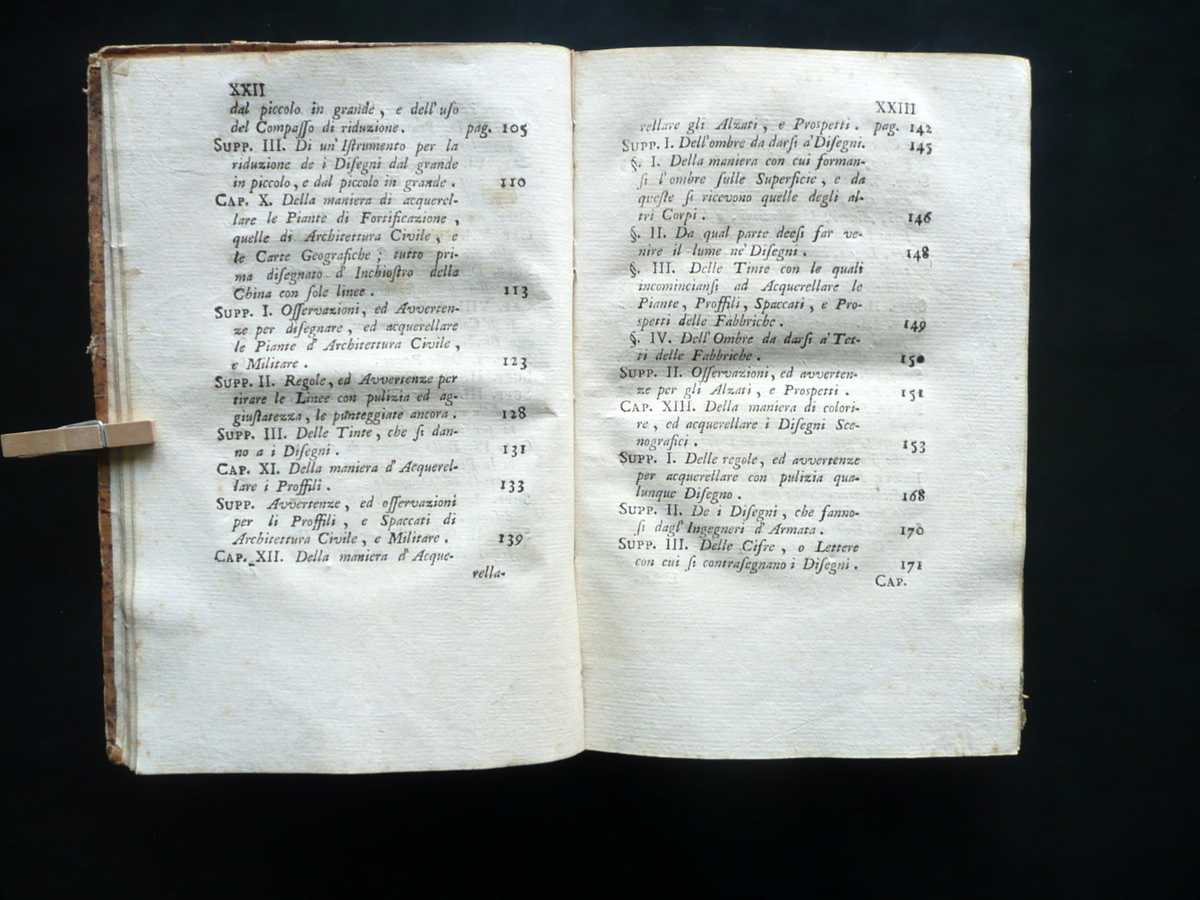 XXII
dal piccolo in grande, e dell'uſo
del Compaſſo di riduzione. pag. 105
SUPP. III. Di un'Iſtrumento per la
riduzione de i Diſegni dal grande
in piccolo, e dal piccolo in grande. 110
CAP. X. Della maniera di acquerel-
lare le Piante di Fortificazione,
quelle di Architettura Civile, e
le Carte Geografiche; tutto pri-
ma diſegnato d'Inchioſtro della
China con ſole linee. 113
SUPP. I. Oſſervazioni, ed Avverten-
ze per diſegnare, ed acquerellare
le Piante d'Architettura Civile,
e Militare. 123
SUPP. II. Regole, ed Avvertenze per
tirare le Linee con pulizia ed ag-
giuſtatezza, le punteggiate ancora. 128
SUPP. III. Delle Tinte, che ſi dan-
no a i Diſegni. 131
CAP. XI. Della maniera d'Acquerel-
lare i Proffili. 133
SUPP. Avvertenze, ed oſſervazioni
per li Proffili, e Spaccati di
Architettura Civile, e Militare. 139
CAP. XII. Della maniera d'Acque-
rella-
XXIII
rellare gli Alzati, e Proſpetti. pag. 142
SUPP. I. Dell'ombre da darſi a'Diſegni. 145
§. I. Della maniera con cui forman-
ſi l'ombre ſulle Superficie, e da
queſte ſi ricevono quelle degli al-
tri Corpi. 146
§. II. Da qual parte deeſi far ve-
nire il lume ne'Diſegni. 148
§. III. Delle Tinte con le quali
incomincianſi ad Acquerellare le
Piante, Proffili, Spaccati, e Pro-
ſpetti delle Fabbriche. 149
§. IV. Dell'Ombre da darſi a'Tet-
ti delle Fabbriche. 150
SUPP. II. Oſſervazioni, ed avverten-
ze per gli Alzati, e Proſpetti. 151
CAP. XIII. Della maniera di colori-
re, ed acquerellare i Diſegni Sce-
nografici. 153
SUPP. I. Delle regole, ed avvertenze
per acquerellare con pulizia qua-
lunque Diſegno. 168
SUPP. II. De i Diſegni, che fanno-
ſi dagl'Ingegneri d'Armata. 170
SUPP. III. Delle Cifre, o Lettere
con cui ſi contraſegnano i Diſegni. 171
CAP.